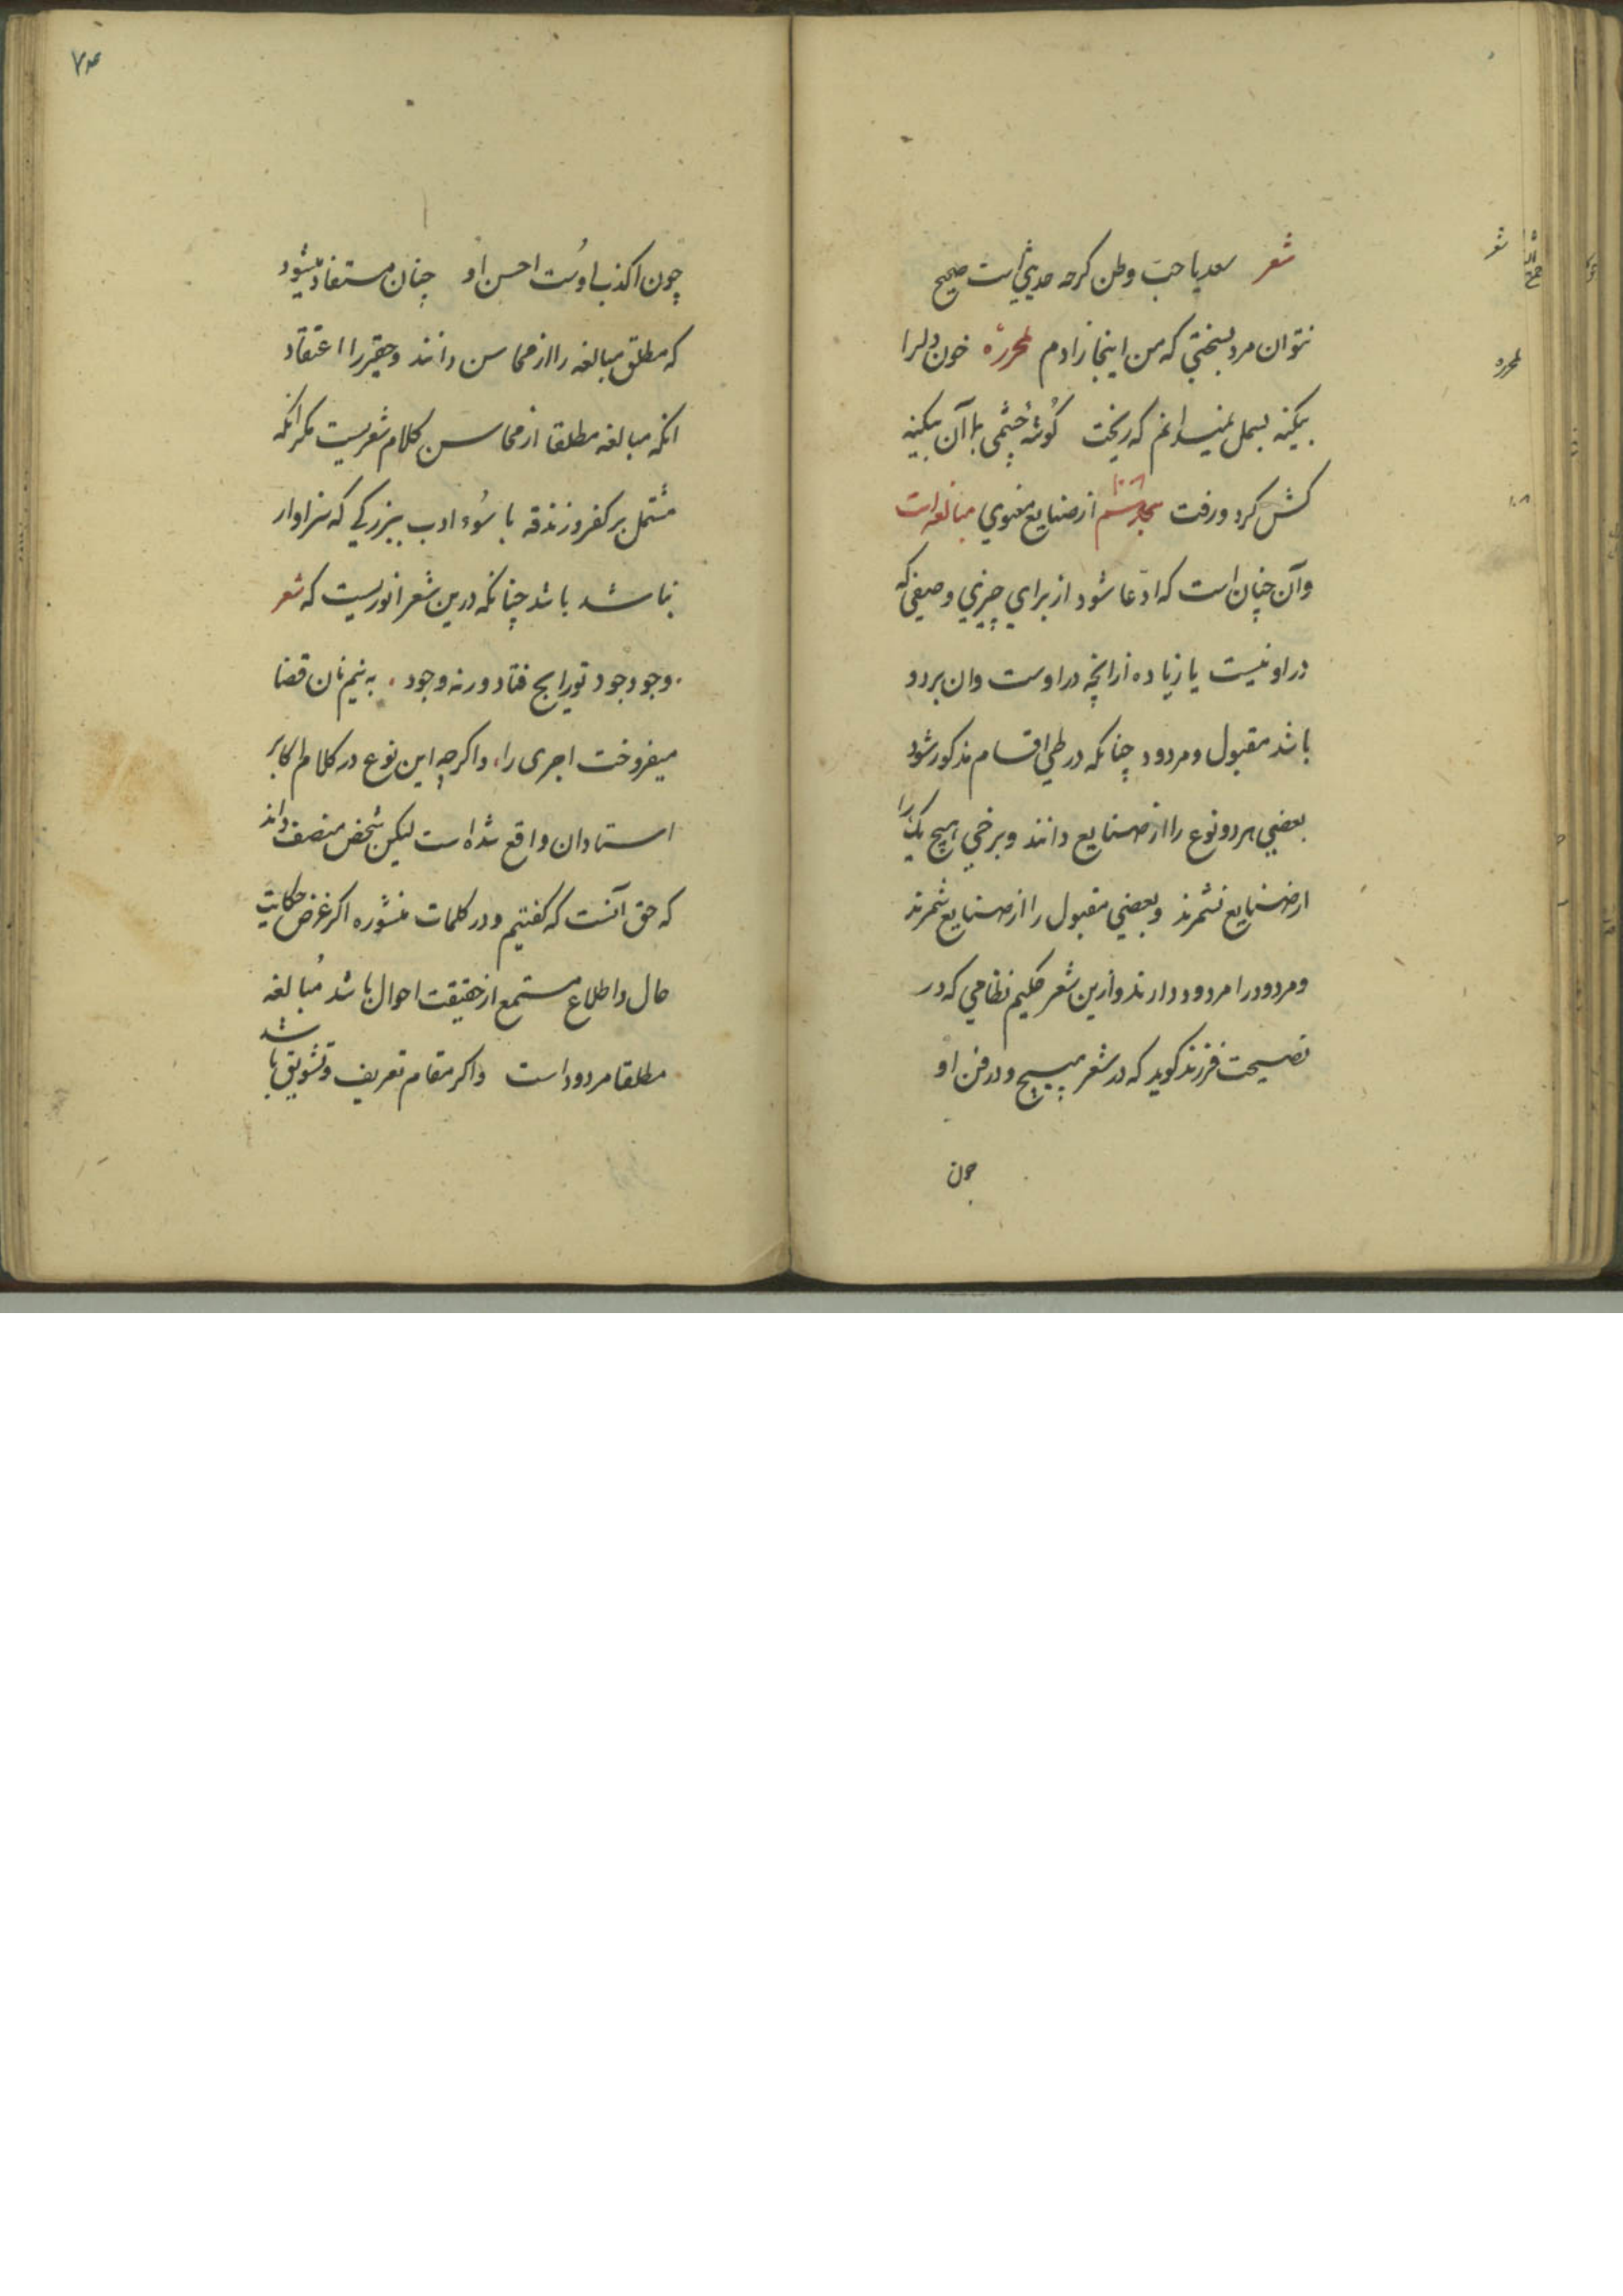 شعر سعدیا حب وطن کرجه حدیثی است صحیح
نتوان مرد بسختی که من اینجا زادم لمحرره خون دلرا
بیکنه بسمل نمیدانم که ریخت کوشه چشمی با آن بیکینه
کش کرد و رفت از صنایع معنوی مبالغه است
وآن چنان است که ادّعا شود از برای چیزی وصفی که
در او نیست یا زیاده از انچه در اوست وان بر دو
باشد مقبول و مردود چنانکه در طی اقسام مذکور شود
بعضی هر دو نوع را از صنایع دانند و برخی هیچ یک را
از صنایع نشمرند و بعضی مقبول را از صنایع شمرند
و مردود را مردود دارند و ازین شعر حکیم نظامی که در
نصیحت فرزند کوید که در شعر مپیچ و در فن او
جون
چون اکذب اوست احسن او چنان مستفاد میشود
که مطلق مبالغه را از محاسن دانند و حقیر را اعتقاد
انکه مبالغه مطلقا از محاسن کلام شعریست مکر انکه
مشتمل بر کفر و زندقه یا سُوء ادب ببزرکی که سزاوار
نباشد باشد چنانکه درین شعر انوریست که شعر
وجود جود تو رایج فتاد ورنه وجود به نیم نان قضا
میفروخت اجری را و اکرچه این نوع در کلام اکابر
استادان واقع شده است لیکن شخص منصف داند
که حق آنست که کفتیم و در کلمات منثوره اکر غرض حکایت
حال و اطلاع مستمع از حقیقت احوال باشد مُبالغه
مطلقا مردود است و اکر مقام تعریف و تشویق باشد